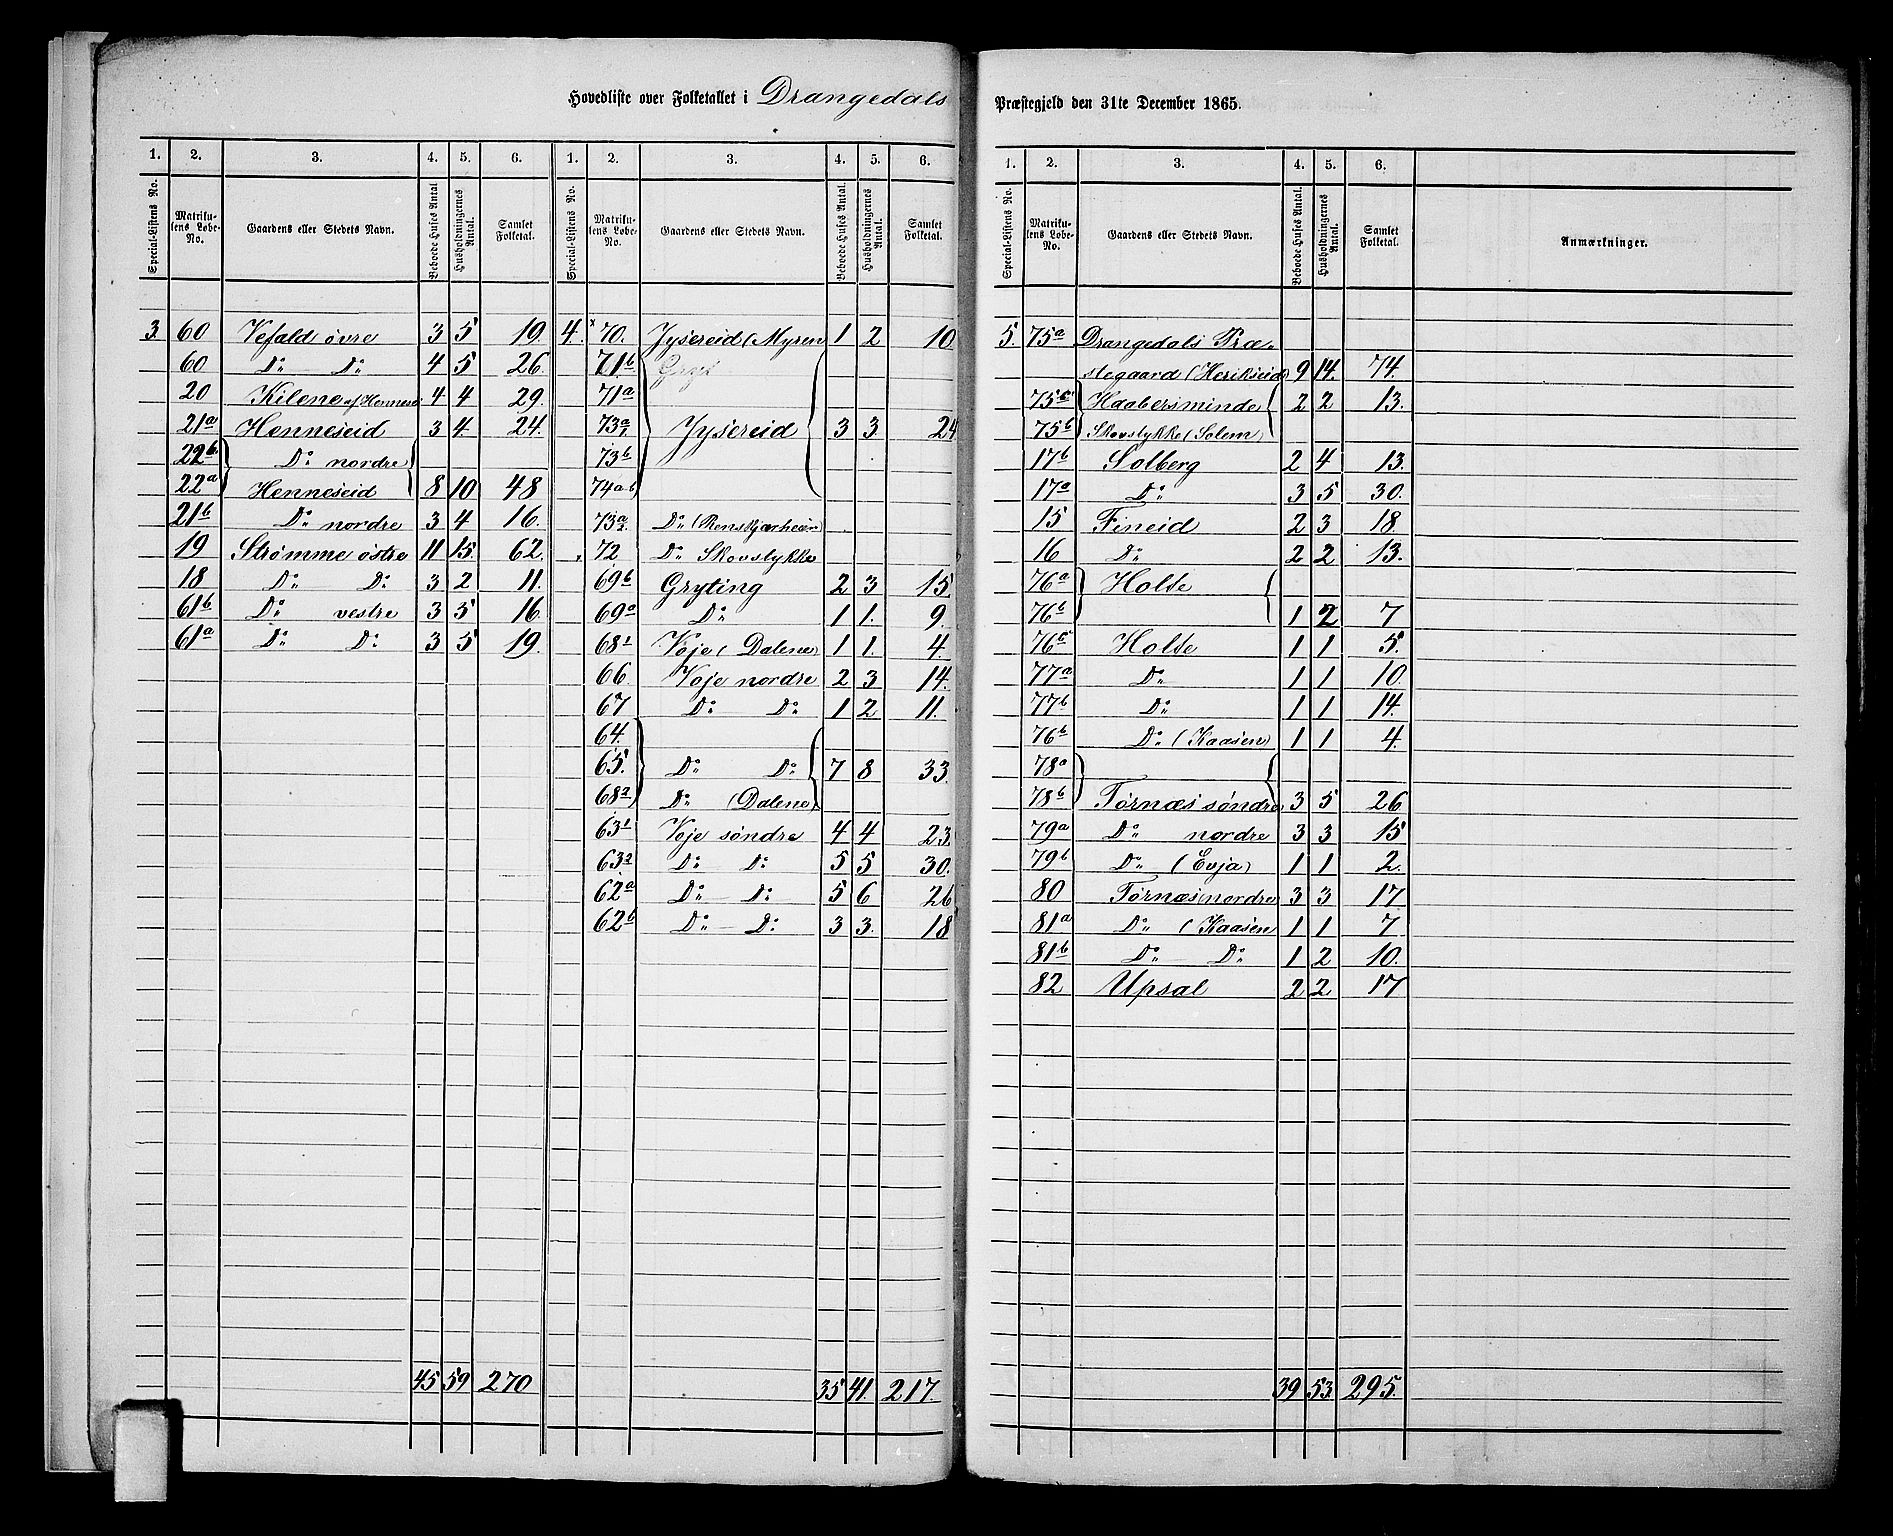 Hovedliste over Folketallet i Drangedals Præstegjeld den 31te December 1865.
1. 2. 3. 4. 5. 6. 1. 2. 3. 4. 5. 6.
Special-Listens No. Matrikulens Løbe-No. Gaardens eller Stedets Navn. Beboede Huses Antal. Husholdningernes Antal. Samlet Folketal. Special-Listens No. Matrikulens Løbe-No. Gaardens eller Stedets Navn. Beboede Huses Antal. Husholdningernes Antal. Samlet Folketal.
3. 60 Vefald øvre 3 5 19.
60 Do Do 4 5 26.
20 Kilene af Hennese 4 4 29.
21a Henneseid 3 4. 24.
22b Do nordre
22a Henneseid 8 10 48
21b Do nordre 3 4 16.
19 Strømme østre 11 15. 62.
18 Do Do 3 2 11.
61b Do vestre 3 3 16
61a Do Do 3 5 19.
45 59 270
4. 70. Jysereid (Myren 1 2 10
71b
71a
73a1 Jysereid 3 3 24
73b
74a-b
73a2 Do
72 Do Skovstykke
69b Gryting 2 3 15.
69a Do 1 1. 9.
681 Voje (Dalene) 1 1. 4.
66. Voje nordre 2 3 14.
67 Do Do 1 2 11.
64.
65. Do Do 7 8 33.
682 Do (Dalene)
631 Voje søndre 4 4 23.
632 Do Do 5 5 30.
62a Do Do 5 6 26
62b Do Do 3 3. 18
35 41. 217.
1. 2. 3. 4. 5. 6.
Special-Listens No. Matrikulens Løbe-No. Gaardens eller Stedets Navn. Beboede Huses Antal. Husholdningernes Antal. Samlet Folketal. Anmærkninger.
5. 75a Drangedals Præ-
stegaard (Herikseid) 9 14. 74.
75c Haabersminde 2 2 13.
75b Skovstykke (Solem)
17b Solberg 2 4 13.
17a Do 3 5 30.
15 Fineid 2 3 18.
16 Do 2 2 13.
76a Holte
76b 1 2 7
76c Holte 1 1 5.
77a Do 1 1 10.
77b Do 1 1 14.
76b Do (Kaasen) 1 1 4.
78a
78b Tørnæs søndre 3 5 26
79a Do nordre 3 3 15
79b Do (Evja) 1 1 2.
80 Tørnæs nordre 3 3 17
81a Do (Kaasen 1 1 7
81b Do Do 1 2 10.
82 Upsal 2 2 17
39 53. 295.